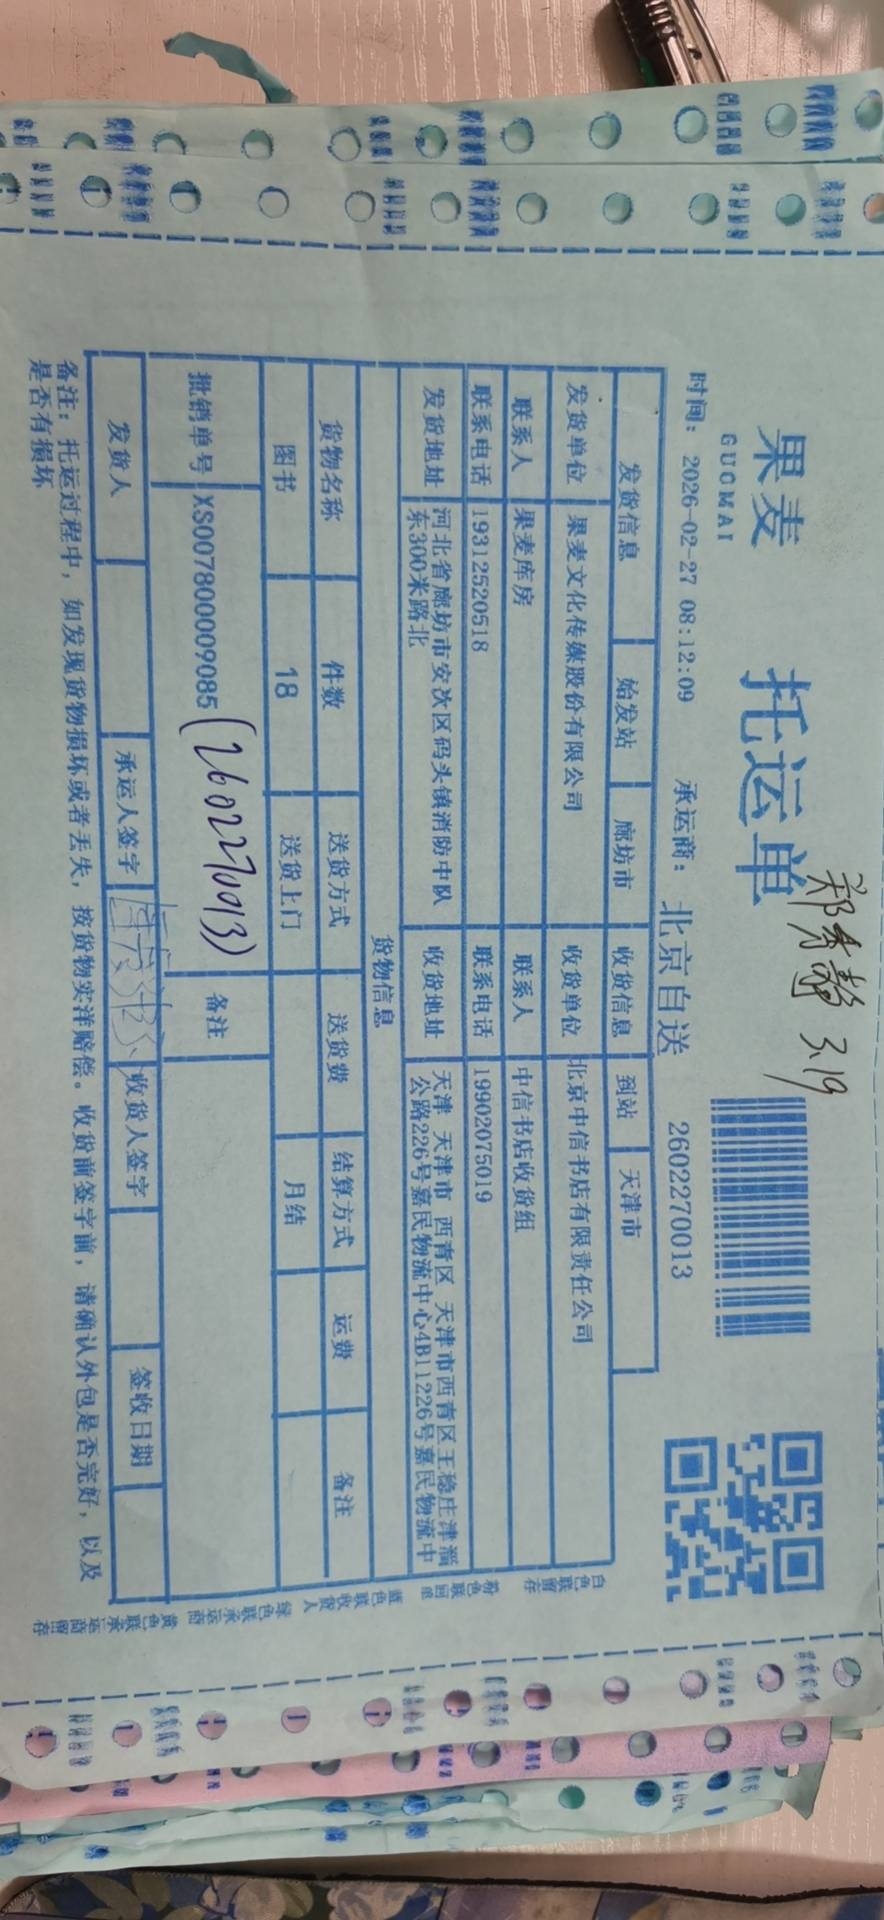 郑秀静 3.19
果麦
GUOMAI
托运单
时间: 2026-02-27 08:12:09 承运商: 北京自送 2602270013
发货信息 始发站 廊坊市 收货信息 到站 天津市
发货单位 果麦文化传媒股份有限公司 收货单位 北京中信书店有限责任公司
联系人 果麦库房 联系人 中信书店收货组
联系电话 19312520518 联系电话 19902075019
发货地址 河北省廊坊市安次区码头镇消防中队东300米路北 收货地址 天津 天津市 西青区 天津市西青区王稳庄津淄公路226号嘉民物流中心4B11226号嘉民物流中
货物信息
货物名称 件数 送货方式 送货费 结算方式 运费 备注
图书 18 送货上门 月结
批销单号 XS007800009085 (2602270013) 备注
发货人 承运人签字 收货人签字 签收日期
备注: 托运过程中, 如发现货物损坏或者丢失, 按货物实洋赔偿。收货前签字前, 请确认外包是否完好, 以及
是否有损坏
白色联留存 粉色联回单 蓝色联收货人 绿色联承运商 黄色联承运商留存